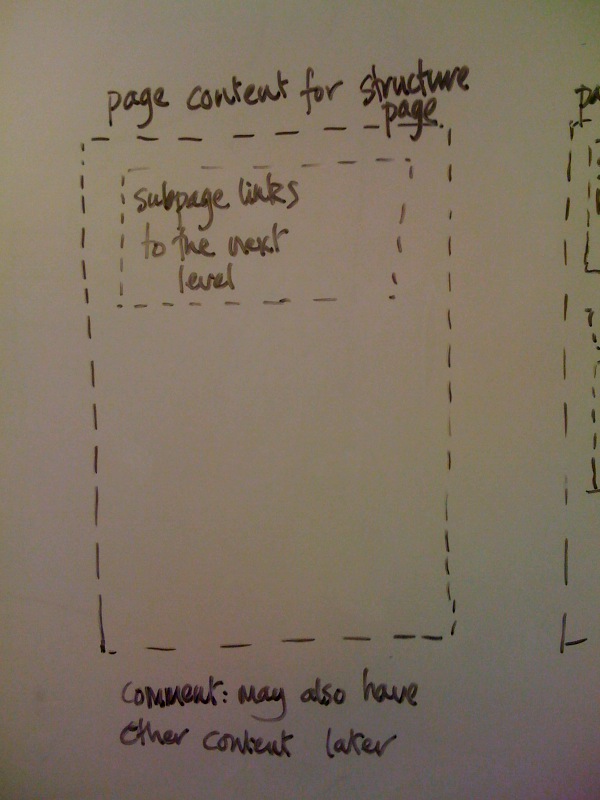 page content for structure
page
subpage links
to the next
level
comment: may also have
other content later
pa